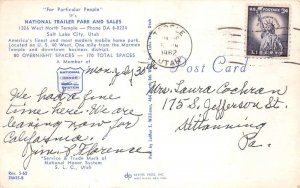 "For Particular People"
It's
NATIONAL TRAILER PARK AND SALES
1326 West North Temple - Phone DA 8-8224
Salt Lake City, Utah
America's finest and most modern mobile home park.
Located on U.S. 40 West. One mile from the Mormon
Temple and downtown business district.
80 OVERNIGHT SPACES - 170 TOTAL SPACES
A Member of
Mon. 30
We had a fine
time here. We are
leaving now for
California.
Jim & Florence
"Service & Trade Mark of
National Honor System
S. L. C., Utah
Rev. 5-62
UTAH
1962
Post Card
Mrs. Laura Cochran
175 S. Jefferson St.
Kittanning
Pa.